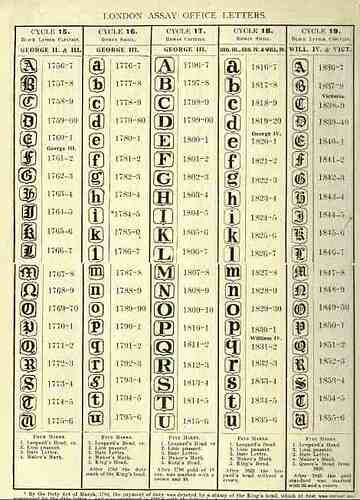 LONDON ASSAY OFFICE LETTERS.
CYCLE 15. CYCLE 16. CYCLE 17. CYCLE 18. CYCLE 19.
BLACK LETTER CAPITALS. ROMAN SMALL. ROMAN CAPITALS. ROMAN SMALL. BLACK LETTER CAPITALS.
GEORGE II. & III. GEORGE III. GEORGE III. WILL. IV. & VICT.
A 1756-7 a 1776-7 A 1796-7 a 1816-7 A 1836-7
B 1757-8 b 1777-8 B 1797-8 b 1817-8 B 1837-8
Victoria.
C 1758-9 c 1778-9 C 1798-9 c 1818-9 C 1838-9
D 1759-60 d 1779-80 D 1799-00 d 1819-20 D 1839-40
George IV.
E 1760-1 e 1780-1 E 1800-1 e 1820-1 E 1840-1
George III.
F 1761-2 f 1781-2 F 1801-2 f 1821-2 F 1841-2
G 1762-3 g 1782-3 G 1802-3 g 1822-3 G 1842-3
H 1763-4 h 1783-4 H 1803-4 h 1823-4 H 1843-4
I 1764-5 i 1784-5 I 1804-5 i 1824-5 I 1844-5
K 1765-6 k 1785-6 K 1805-6 k 1825-6 K 1845-6
L 1766-7 l 1786-7 L 1806-7 l 1826-7 L 1846-7
M 1767-8 m 1787-8 M 1807-8 m 1827-8 M 1847-8
N 1768-9 n 1788-9 N 1808-9 n 1828-9 N 1848-9
O 1769-70 o 1789-90 O 1809-10 o 1829-30 O 1849-50
P 1770-1 p 1790-1 P 1810-1 p 1830-1 P 1850-1
William IV.
Q 1771-2 q 1791-2 Q 1811-2 q 1831-2 Q 1851-2
R 1772-3 r 1792-3 R 1812-3 r 1832-3 R 1852-3
S 1773-4 s 1793-4 S 1813-4 s 1833-4 S 1853-4
T 1774-5 t 1794-5 T 1814-5 t 1834-5 T 1854-5
U 1775-6 u 1795-6 U 1815-6 u 1835-6 U 1855-6
FOUR MARKS. FIVE MARKS. FIVE MARKS. FIVE MARKS. FIVE MARKS.
1. Leopard's Head 1. Leopard's Head 1. Leopard's Head 1. Leopard's Head 1. Leopard's Head
2. Lion passant. 2. Lion passant. 2. Lion passant. 2. Lion passant. 2. Lion passant.
3. Date Letter. 3. Date Letter. 3. Date Letter. 3. Date Letter. 3. Date Letter.
4. Maker's Mark. 4. Maker's Mark. 4. Maker's Mark. 4. Maker's Mark. 4. Maker's Mark.
5. King's Head. 5. King's Head. 5. King's Head.